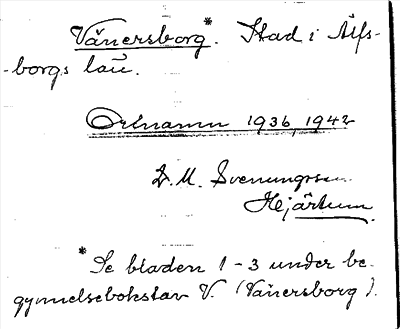 Vänersborg*. Stad i Älfs-
-borgs län.
Ortnamn 1936, 1942
D. M. Svenungsson
Hjärtum.
* Se bladen 1-3 under be-
gynnelsebokstav V. (Vänersborg).